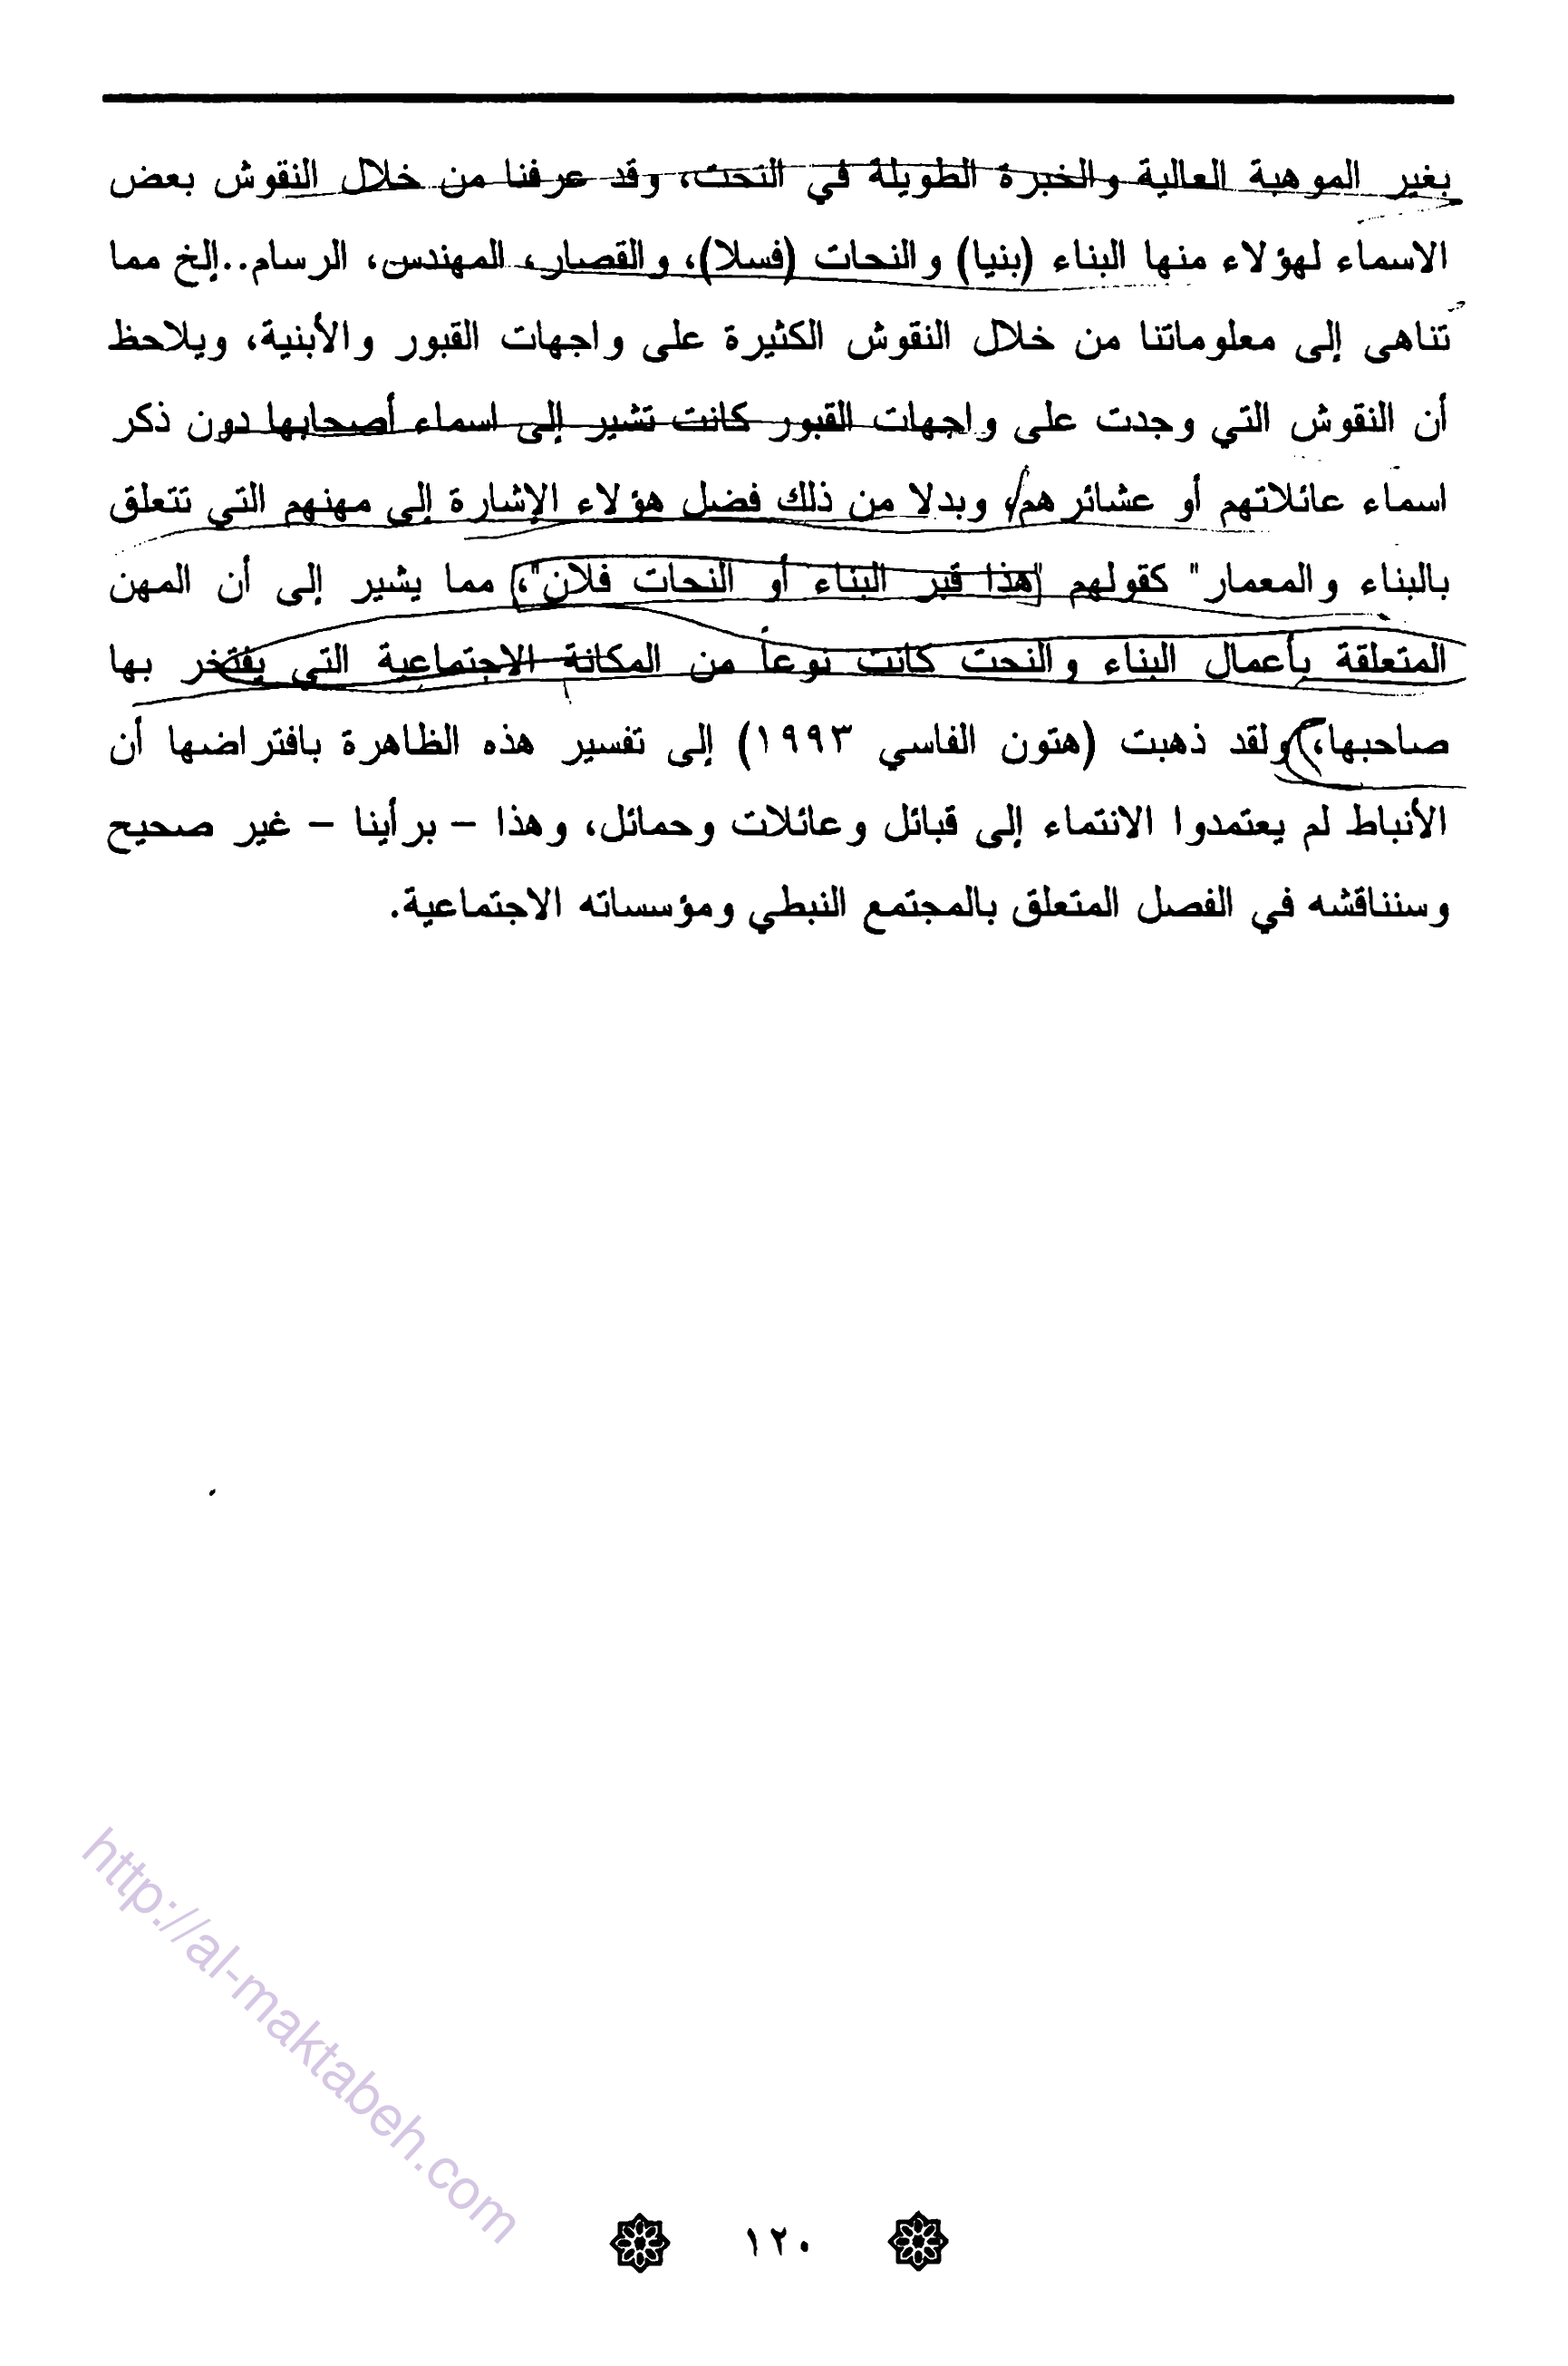 بغير الموهبة العالية والخبرة الطويلة في النحت، وقد عرفنا من خلال النقوش بعض
الاسماء لهؤلاء منها البناء (بنيا) والنحات (فسلا)، والقصار، المهندس، الرسام..إلخ مما
تناهى إلى معلوماتنا من خلال النقوش الكثيرة على واجهات القبور والأبنية، ويلاحظ
أن النقوش التي وجدت على واجهات القبور كانت تشير إلى اسماء أصحابها دون ذكر
اسماء عائلاتهم أو عشائرهم، وبدلا من ذلك فضل هؤلاء الإشارة إلى مهنهم التي تتعلق
بالبناء والمعمار" كقولهم "هذا قبر البناء أو النحات فلان"، مما يشير إلى أن المهن
المتعلقة بأعمال البناء والنحت كانت نوعاً من المكانة الاجتماعية التي يفتخر بها
صاحبها، ولقد ذهبت (هتون الفاسي ١٩٩٣) إلى تفسير هذه الظاهرة بافتراضها أن
الأنباط لم يعتمدوا الانتماء إلى قبائل وعائلات وحمائل، وهذا – برأينا – غير صحيح
وسنناقشه في الفصل المتعلق بالمجتمع النبطي ومؤسساته الاجتماعية.
http://al-maktabeh.com
١٢٠